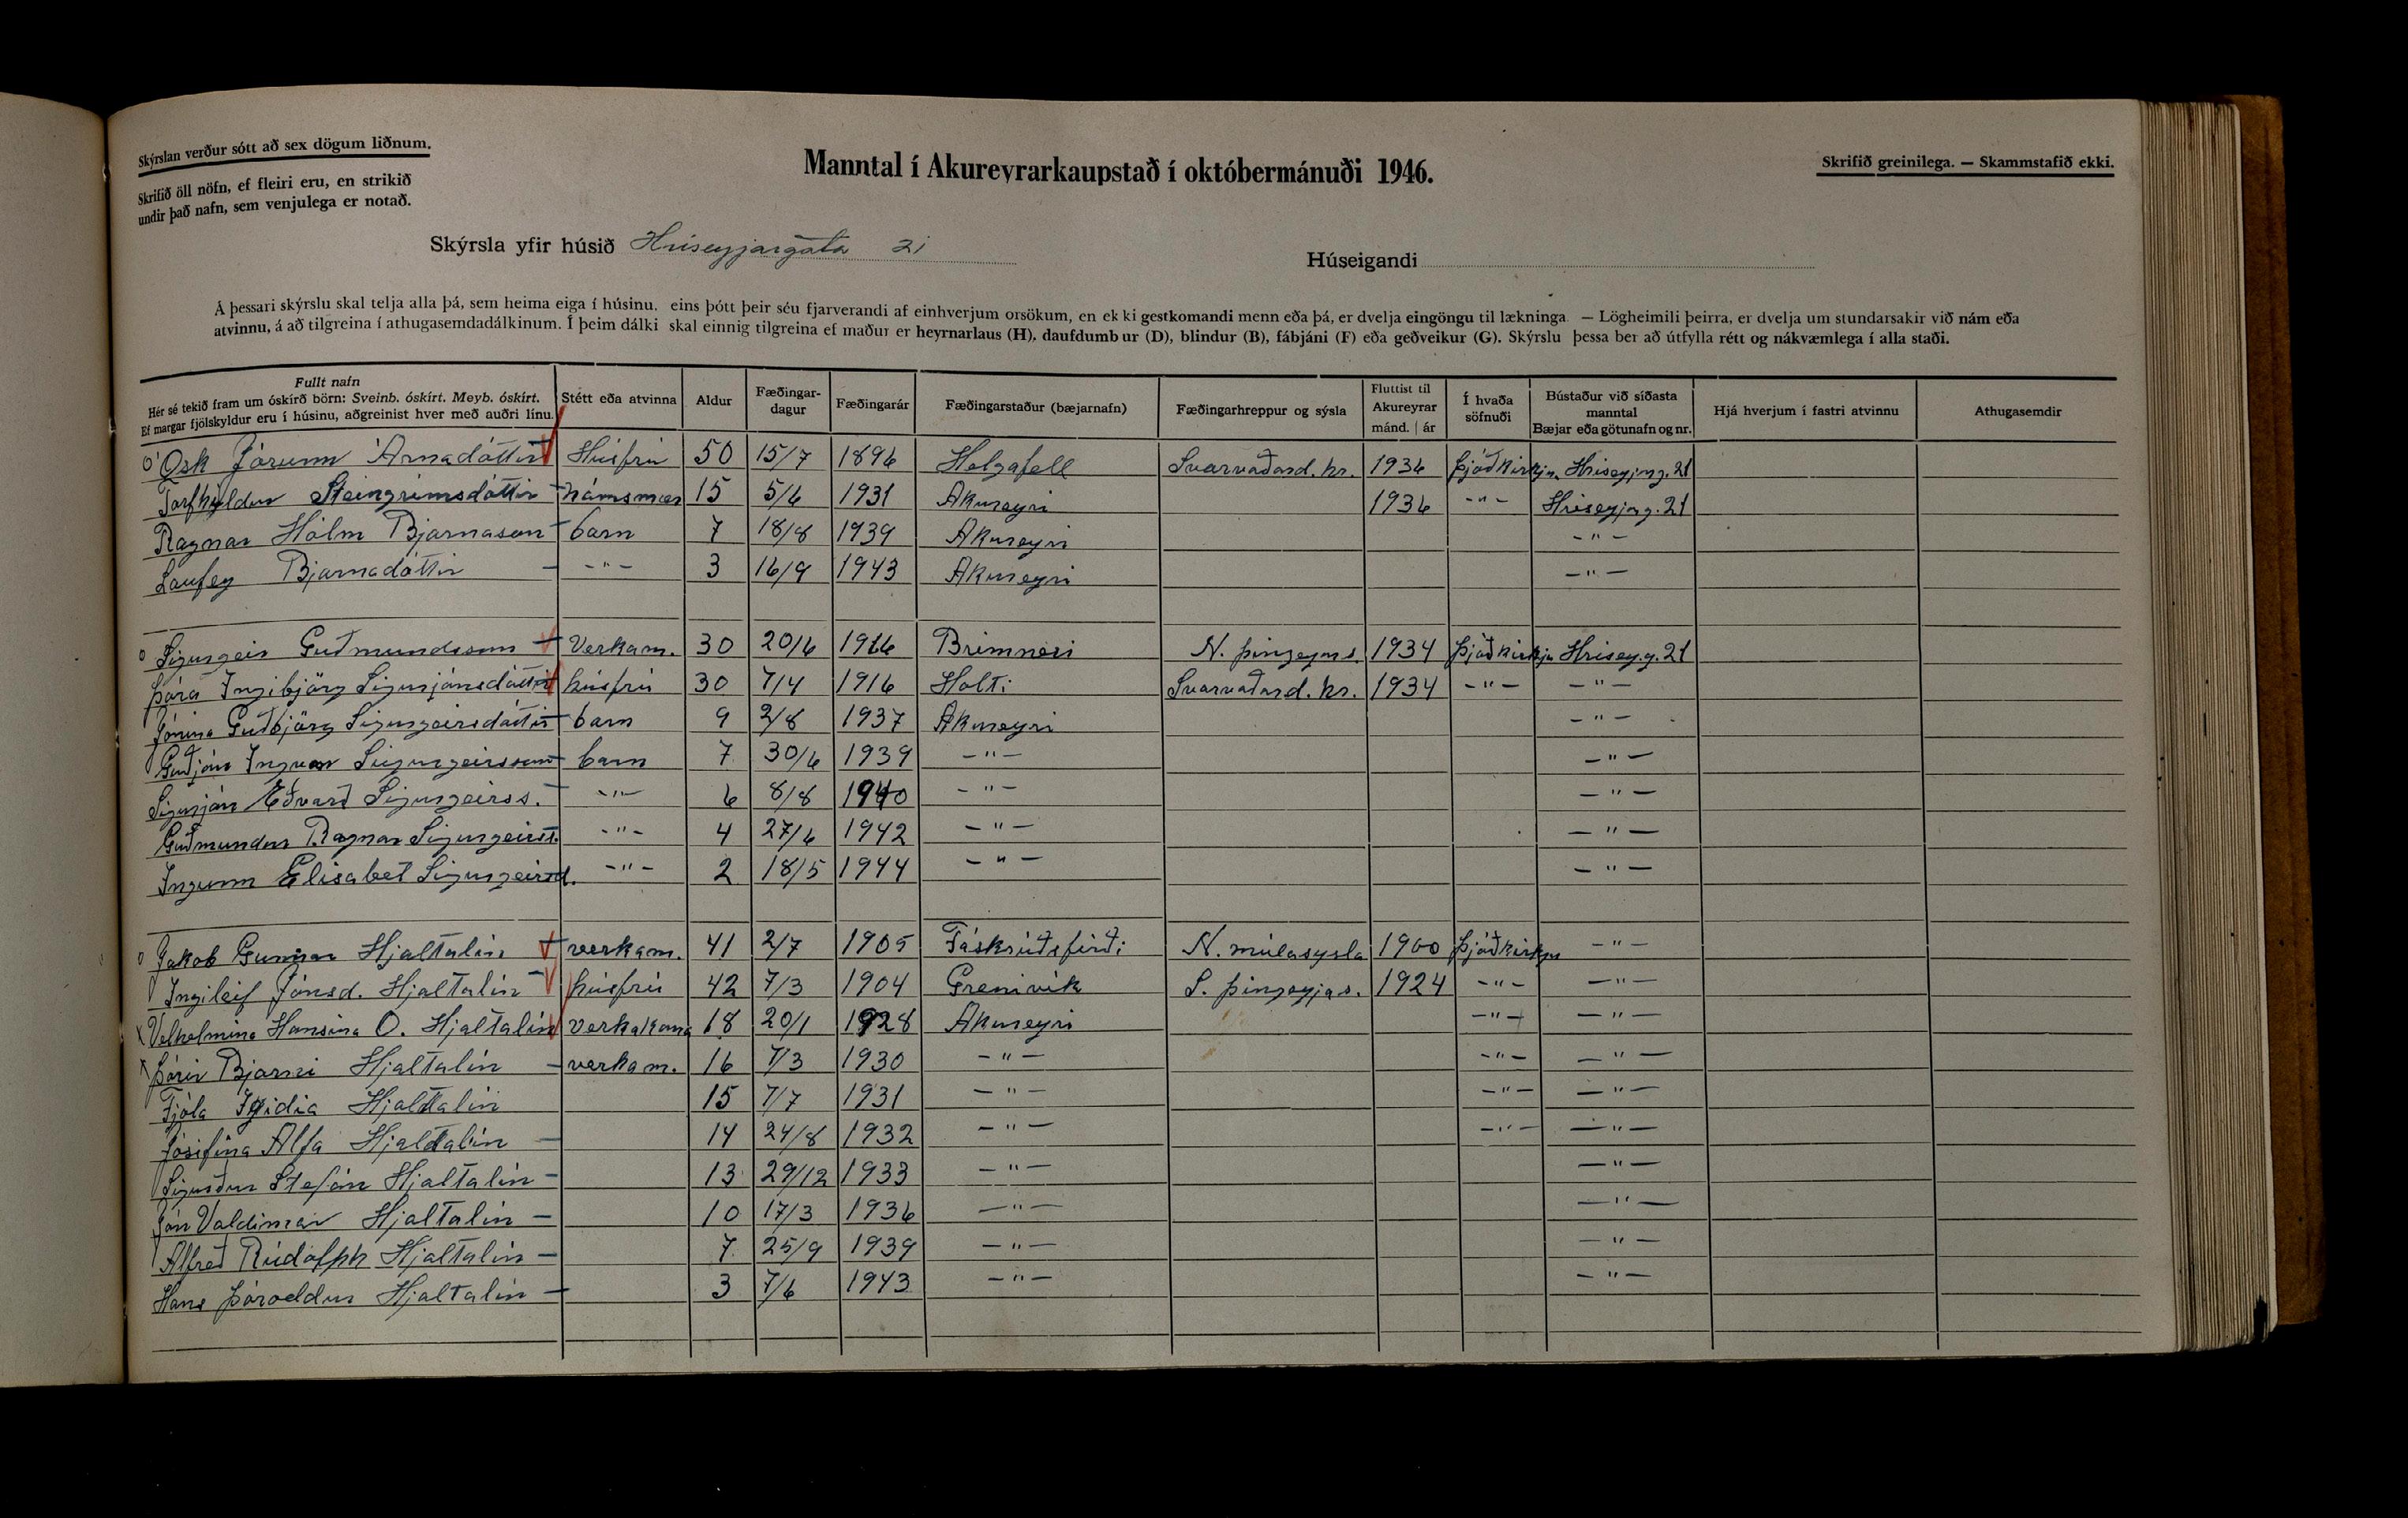 Skýrslan verður sótt að sex dögum liðnum.
Skrifið öll nöfn, ef fleiri eru, en strikið
undir það nafn, sem venjulega er notað.
Manntal í Akureyrarkaupstað í októbermánuði 1946.
Skrifið greinilega. — Skammstafið ekki.
Skýrsla yfir húsið Hríseyjargata 21
Húseigandi
Á þessari skýrslu skal telja alla þá, sem heima eiga í húsinu, eins þótt þeir séu fjarverandi af einhverjum orsökum, en ekki gestkomandi menn eða þá, er dvelja eingöngu til lækninga. — Lögheimili þeirra, er dvelja um stundarsakir við nám eða
atvinnu, á að tilgreina í athugasemdadálkinum. Í þeim dálki skal einnig tilgreina ef maður er heyrnarlaus (H), daufdumbur (D), blindur (B), fábjáni (F) eða geðveikur (G). Skýrslu þessa ber að útfylla rétt og nákvæmlega í alla staði.
Fullt nafn
Hér sé tekið fram um óskírð börn: Sveinb. óskírt. Meyb. óskírt.
Ef margar fjölskyldur eru í húsinu, aðgreinist hver með auðri línu.
Stétt eða atvinna
Aldur
Fæðingar-
dagur
Fæðingarár
Fæðingarstaður (bæjarnafn)
Fæðingarhreppur og sýsla
Fluttist til
Akureyrar
mánd. | ár
Í hvaða
söfnuði
Bústaður við síðasta
manntal
Bæjar eða götunafn og nr.
Hjá hverjum í fastri atvinnu
Athugasemdir
Ósk Jórunn Árnadóttir Húsfrú 50 15/7 1896 Helgafell Svarvaðard. hr. 1936 Þjóðkirkju Hríseyjarg. 21
Torfhildur Steingrímsdóttir námsmær 15 5/6 1931 Akureyri 1936 -"- Hríseyjarg. 21
Ragnar Hólm Bjarnason barn 7 18/8 1939 Akureyri -"-
Laufey Bjarnadóttir -"- 3 16/9 1943 Akureyri -"-
Sigurgeir Guðmundsson Verkam. 30 20/6 1916 Brimnesi N. þingeyjars. 1934 Þjóðkirkju Hrísey.g. 21
Þóra Ingibjörg Sigurjónsdóttir húsfrú 30 7/4 1916 Holti Svarvaðard. hr. 1934 -"- -"-
Jónína Guðbjörg Sigurgeirsdóttir barn 9 2/8 1937 Akureyri -"-
Guðjón Ingvar Sigurgeirsson barn 7 30/6 1939 -"- -"-
Sigurjón Eðvarð Sigurgeirss. -"- 6 8/8 1940 -"- -"-
Guðmundur Ragnar Sigurgeirss. -"- 4 27/6 1942 -"- -"-
Ingunn Elísabet Sigurgeirsd. -"- 2 18/5 1944 -"- -"-
Jakob Gunnar Hjaltalín verkam. 41 2/7 1905 Fáskrúðsfirði N. múlasýsla 1900 Þjóðkirkju -"-
Ingileif Jónsd. Hjaltalín húsfrú 42 7/3 1904 Grenivík S. þingeyjas. 1924 -"- -"-
Velhelmína Hansína O. Hjaltalín verkakona 18 20/1 1928 Akureyri -"- -"-
Þórir Bjarni Hjaltalín verkam. 16 7/3 1930 -"- -"- -"-
Fjóla Hjaltalín 15 7/7 1931 -"- -"- -"-
Jósifína Alfa Hjaltalín 14 24/8 1932 -"- -"- -"-
Sigurður Stefán Hjaltalín 13 29/12 1933 -"- -"-
Jón Valdimar Hjaltalín 10 17/3 1936 -"- -"-
Alfreð Rúdólph Hjaltalín 7 25/9 1939 -"- -"-
Hans Þóroddur Hjaltalín 3 7/6 1943 -"- -"-